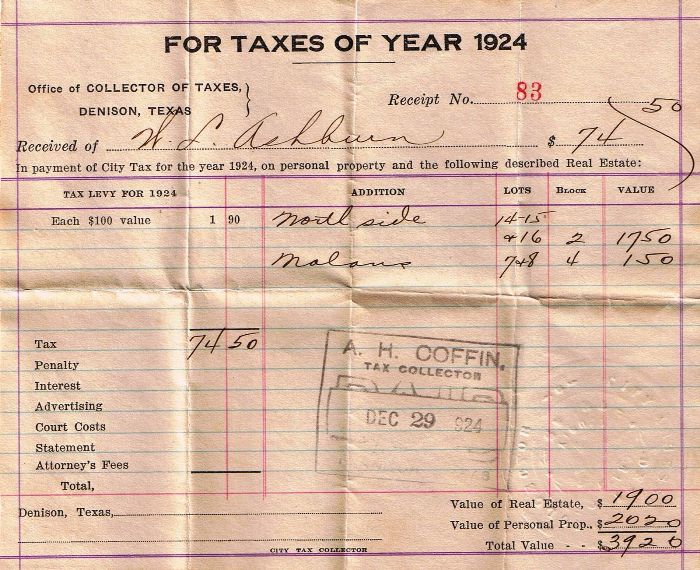 FOR TAXES OF YEAR 1924
Office of COLLECTOR OF TAXES,
DENISON, TEXAS
Receipt No. 83
Received of W. L. Ashburn $ 74 50
In payment of City Tax for the year 1924, on personal property and the following described Real Estate:
TAX LEVY FOR 1924 ADDITION LOTS BLOCK VALUE
Each $100 value 1 90 North side 14-15
&16 2 1750
Malone 7&8 4 150
Tax 74 50
Penalty
Interest
Advertising
Court Costs
Statement
Attorney's Fees
Total,
A. H. COFFIN,
TAX COLLECTOR
PAID
DEC 29 1924
Value of Real Estate, $ 1900
Denison, Texas,
Value of Personal Prop., $ 2020
Total Value - - $ 3920
CITY TAX COLLECTOR